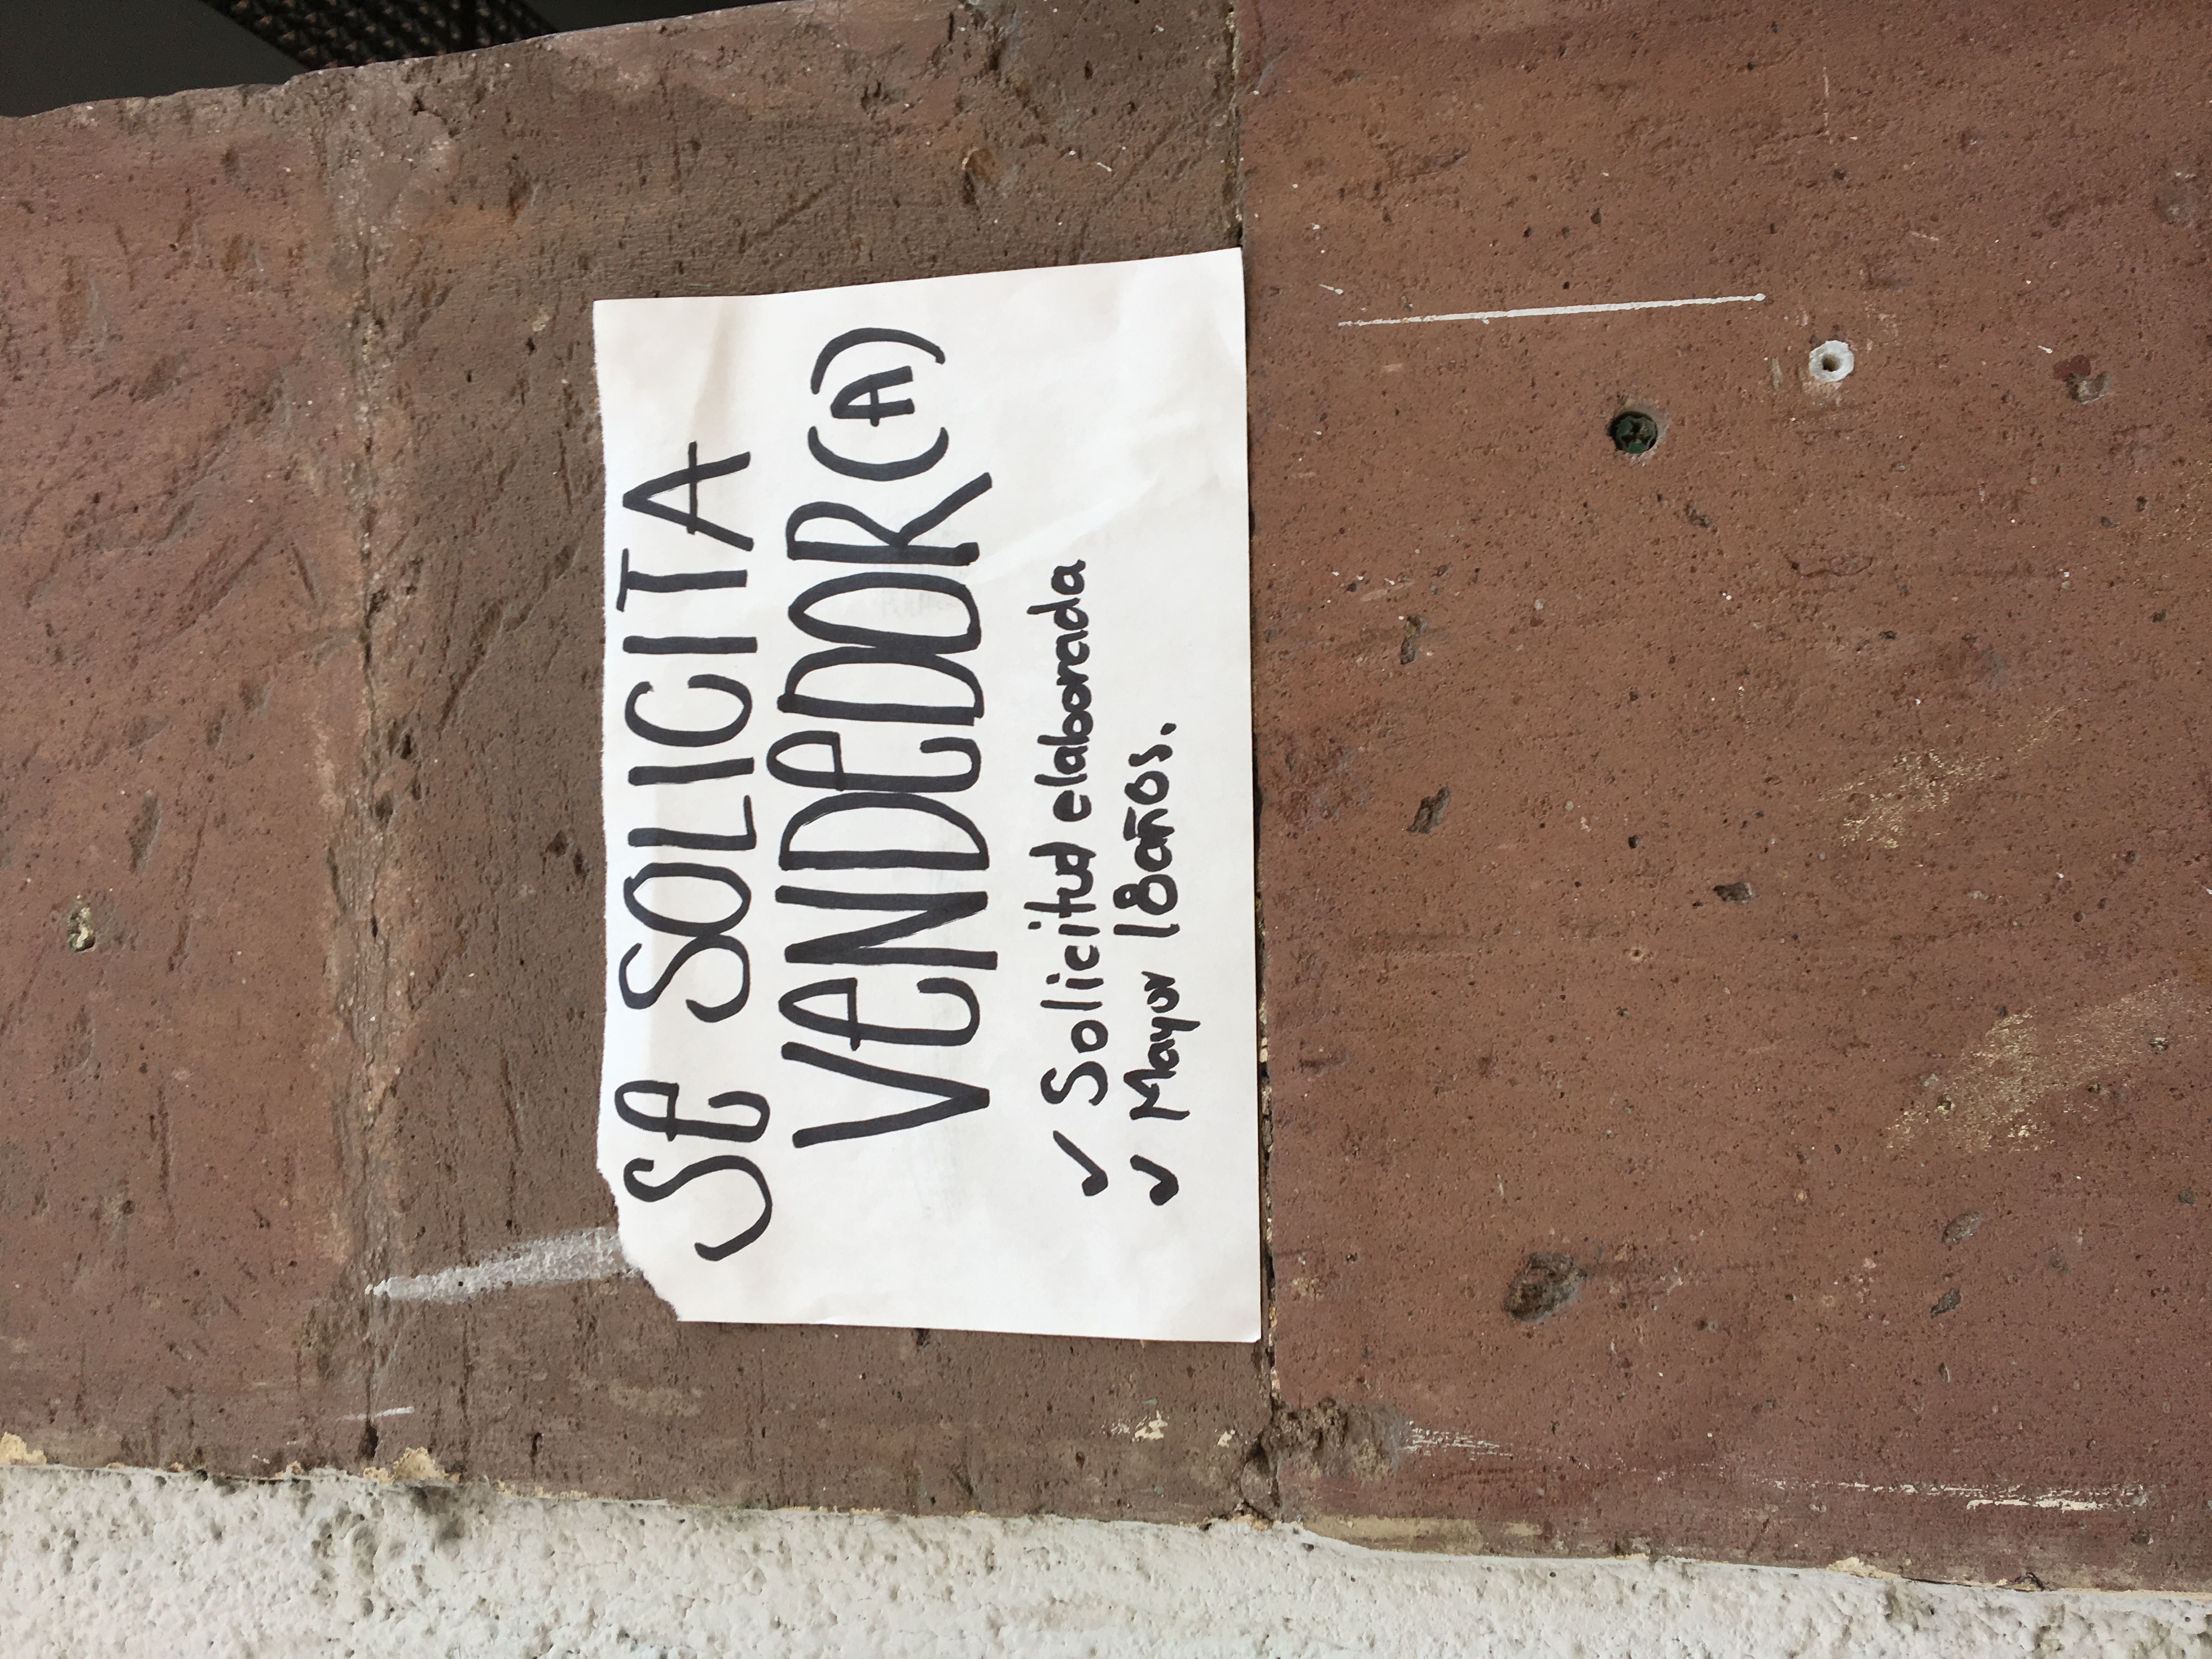 Se SOLICITA
VeNDeDOR(A)
✓ Solicitud elaborada
✓ Mayor 18 años.